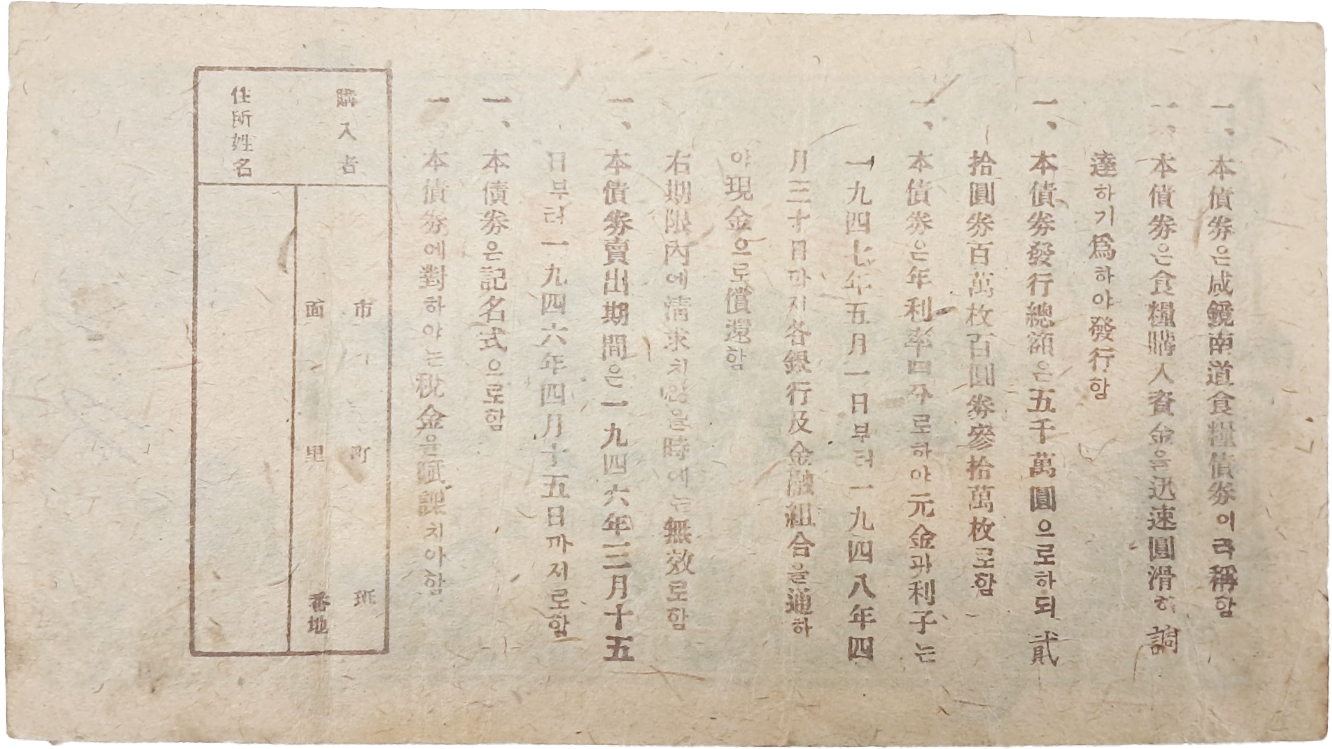 一、本債券은咸鏡南道食糧債券이라稱함
一、本債券은食糧購入資金을迅速圓滑히調
達하기爲하야發行함
一、本債券發行總額은五千萬圓으로하되貳
拾圓券百萬枚百圓券參拾萬枚로함
一、本債券은年利率四分로하야元金과利子는
一九四七年五月一日부터一九四八年四
月三十日까지各銀行及金融組合을通하
야現金으로償還함
右期限內에請求치않을時에는無效로함
一、本債券賣出期間은一九四六年三月十五
日부터一九四六年四月十五日까지로함
一、本債券은記名式으로함
一、本債券에對하야는稅金을賦課치아함
購入者
住所姓名
市 町 班
面 里 番地